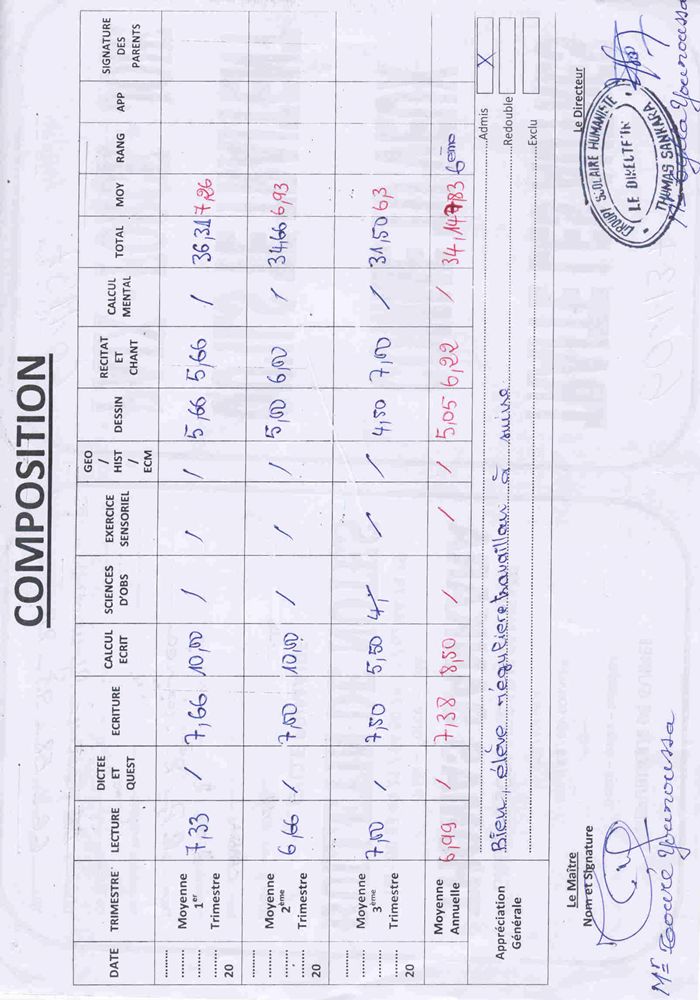 COMPOSITION
DATE TRIMESTRE LECTURE DICTEE ET QUEST ECRITURE CALCUL ECRIT SCIENCES D'OBS EXERCICE SENSORIEL GEO / HIST / ECM DESSIN RECITAT ET CHANT CALCUL MENTAL TOTAL MOY RANG APP SIGNATURE DES PARENTS
.......... .......... 20 Moyenne 1er Trimestre 7,33 / 7,66 10,00 / / / 5,66 5,66 / 36,31 7,26
.......... .......... 20 Moyenne 2ème Trimestre 6,66 / 7,00 10,00 / / / 5,00 6,00 / 34,66 6,93
.......... .......... 20 Moyenne 3ème Trimestre 7,00 / 7,50 5,50 / / 4,50 7,00 / 31,50 6,3
Moyenne Annuelle 6,99 / 7,38 8,50 / / / 5,05 6,22 / 34,14 6ème
Appréciation Générale Bien, élève régulière travaillan à suivre
Admis X
Redouble
Exclu
Le Maître
Nom et Signature
Mr Touré Younoussa
Le Directeur
GROUPE SCOLAIRE HUMANISTE
LE DIRECTEUR
THOMAS SANKARA
Younoussa